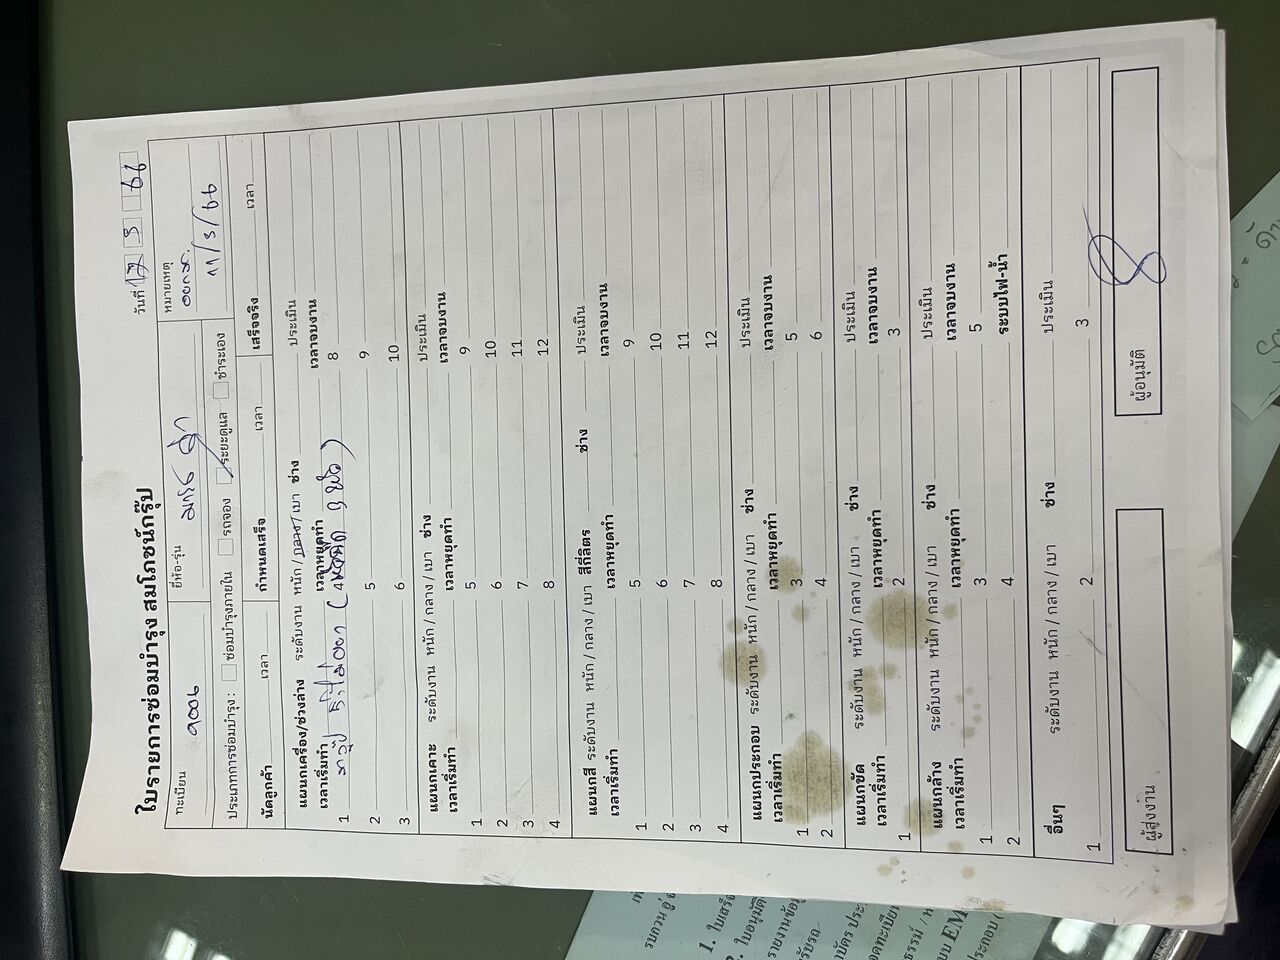 ใบรายการซ่อมบำรุง สมโภชน์กรุ๊ป
วันที่ 12 3 66
ทะเบียน 9006 ยี่ห้อ-รุ่น หมายเหตุ
11/3/66
ประเภทการซ่อมบำรุง : ซ่อมบำรุงภายใน รถจอง ระยะดูแล ชำระเอง
นัดลูกค้า เวลา กำหนดเสร็จ เวลา เสร็จจริง เวลา
แผนกเครื่อง/ช่วงล่าง ระดับงาน หนัก / กลาง / เบา ช่าง ประเมิน
เวลาเริ่มทำ เวลาหยุดทำ เวลาจบงาน
1 4 8
2 5 9
3 6 10
แผนกเคาะ ระดับงาน หนัก / กลาง / เบา ช่าง ประเมิน
เวลาเริ่มทำ เวลาหยุดทำ เวลาจบงาน
1 5 9
2 6 10
3 7 11
4 8 12
แผนกสี ระดับงาน หนัก / กลาง / เบา สีกี่ลิตร ช่าง ประเมิน
เวลาเริ่มทำ เวลาหยุดทำ เวลาจบงาน
1 5 9
2 6 10
3 7 11
4 8 12
แผนกประกอบ ระดับงาน หนัก / กลาง / เบา ช่าง ประเมิน
เวลาเริ่มทำ เวลาหยุดทำ เวลาจบงาน
1 3 5
2 4 6
แผนกขัด ระดับงาน หนัก / กลาง / เบา ช่าง ประเมิน
เวลาเริ่มทำ เวลาหยุดทำ เวลาจบงาน
1 2 3
แผนกล้าง ระดับงาน หนัก / กลาง / เบา ช่าง ประเมิน
เวลาเริ่มทำ เวลาหยุดทำ เวลาจบงาน
1 3 5
2 4 ระบบไฟ-น้ำ
อื่นๆ ระดับงาน หนัก / กลาง / เบา ช่าง ประเมิน
1 2 3
ผู้สั่งงาน ผู้อนุมัติ